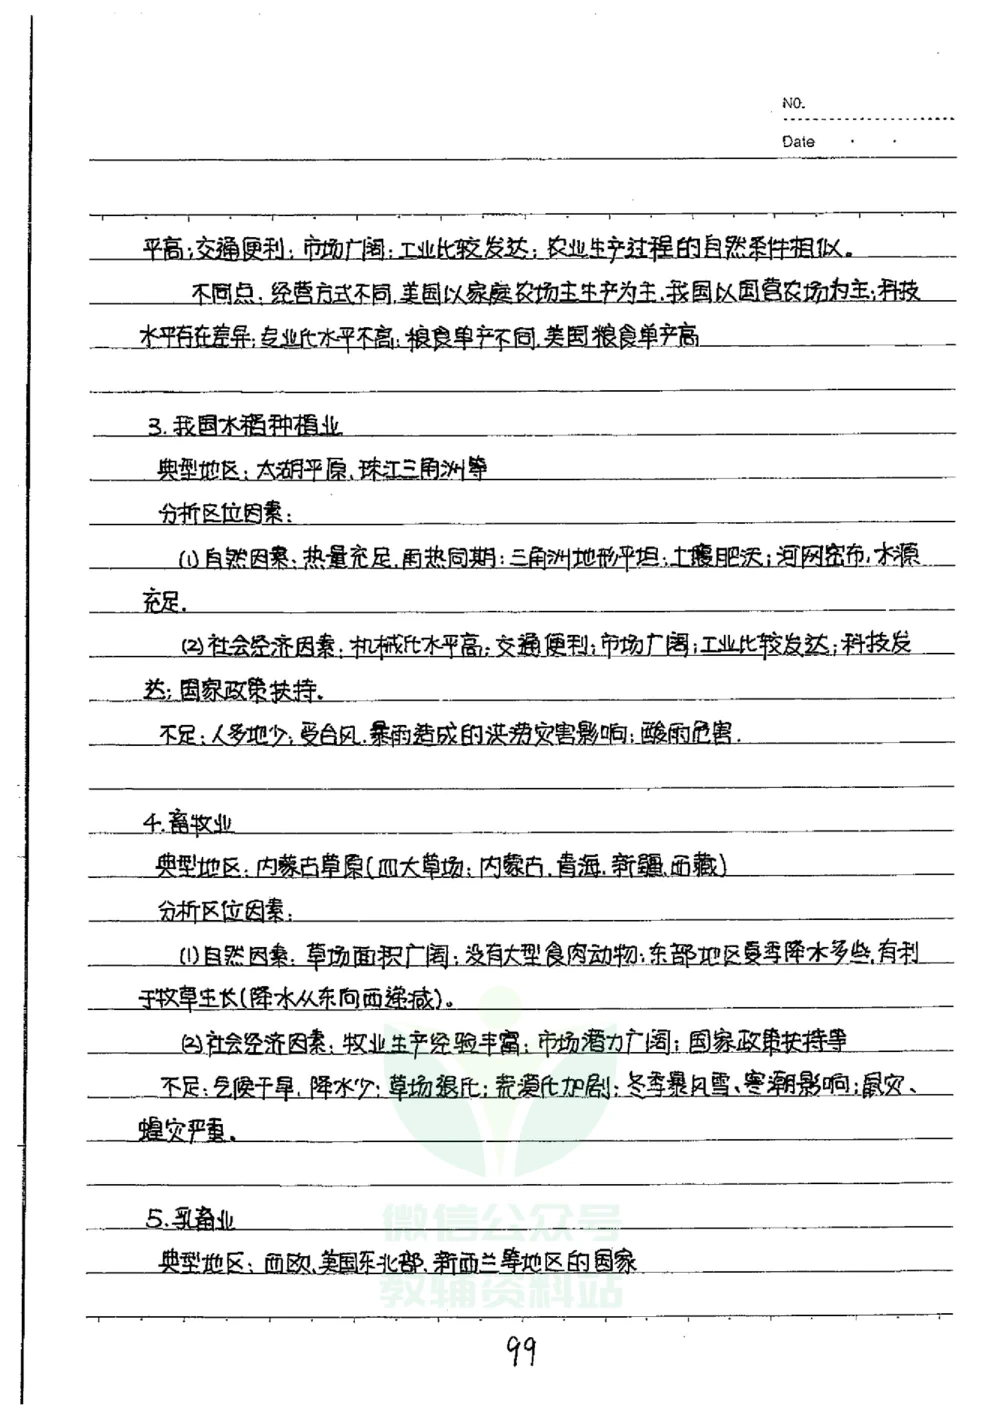 NO.
Date
平高；交通便利；市场广阔；工业比较发达；农业生产过程的自然条件相似。
不同点：经营方式不同，美国以家庭农场主生产为主，我国以国营农场为主；科技
水平存在差异；专业化水平不高；粮食单产不同，美国粮食单产高
3.我国水稻种植业
典型地区：太湖平原、珠江三角洲等
分析区位因素：
(1)自然因素：热量充足，雨热同期；三角洲地形平坦；土壤肥沃；河网密布，水源
充足。
(2)社会经济因素：机械化水平高；交通便利；市场广阔；工业比较发达；科技发
达；国家政策扶持。
不足：人多地少；受台风、暴雨造成的洪涝灾害影响；酸雨危害.
4.畜牧业
典型地区：内蒙古草原(四大草场：内蒙古、青海、新疆、西藏)
分析区位因素：
(1)自然因素：草场面积广阔；没有大型食肉动物；东部地区夏季降水多些，有利
于牧草生长(降水从东向西递减)。
(2)社会经济因素：牧业生产经验丰富；市场潜力广阔；国家政策扶持等
不足：气候干旱，降水少；草场退化；荒漠化加剧；冬季暴风雪、寒潮影响；鼠灾、
蝗灾严重。
5.乳畜业
微信公众号
典型地区：西欧、美国东北部、新西兰等地区的国家
教辅资料站
99